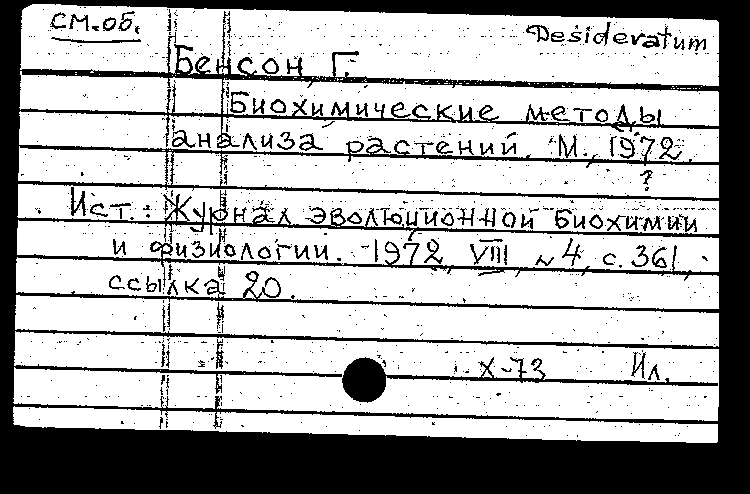 см. об.
Desideratum
Бенсон, Г.
Биохимические методы
анализа растений. М., 1972.
?
Ист.: Журнал эволюционной биохимии
и физиологии. 1972, VIII, № 4, с. 361,
ссылка 20.
X-73 Ил.